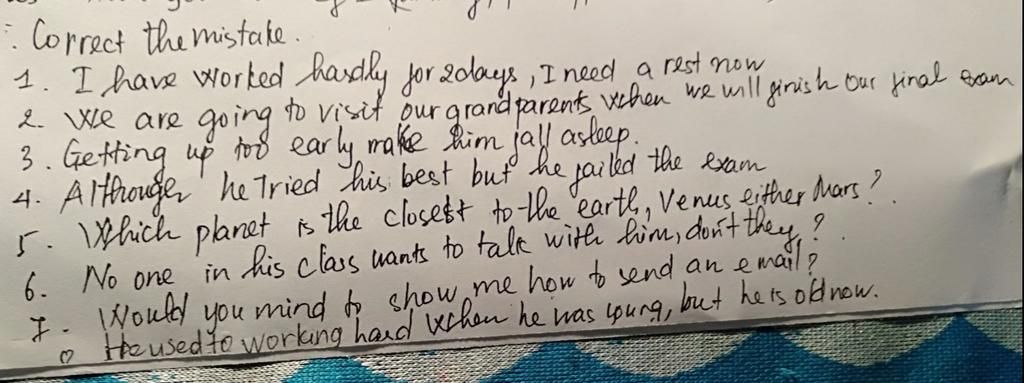 Correct the mistake.
1. I have worked hardly for 2days, I need a rest now
2. We are going to visit our grandparents when we will finish our final exam
3. Getting up too early make him fall asleep.
4. Although he Tried his best but he failed the exam
5. Which planet is the closest to the earth, Venus either Mars?
6. No one in his class wants to talk with him, don't they?
7. Would you mind to show me how to send an email?
He used to working hard when he was young, but he is old now.